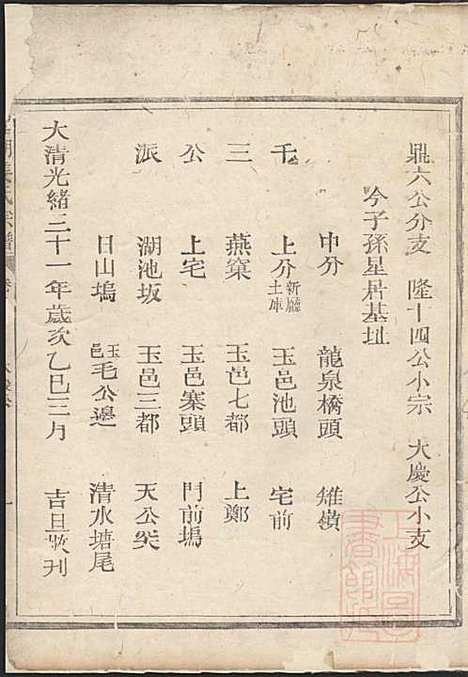 鼎六公分支　隆十四公小宗　大慶公小支
今子孫星居基址
中分　龍泉橋頭　雉嶺
千　上分新廳土庫　玉邑池頭　宅前
三　燕窠　玉邑七都　上鄭
公　上宅　玉邑寨頭　門前塢
派　湖池坂　玉邑三都　天公尖
日山塢　玉邑毛公邊　清水塘尾
大清光緒三十一年歲次乙巳三月　吉旦敬刊
氏宗譜